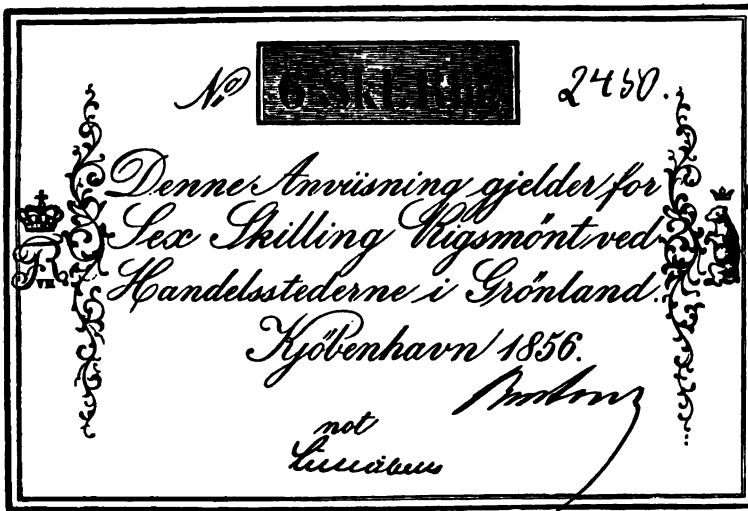 No 6 Skl. R.M. 2450.
Denne Anviisning gjelder for
Sex Skilling Rigsmönt ved
Handelsstederne i Grönland.
Kjöbenhavn 1856.
not
VII